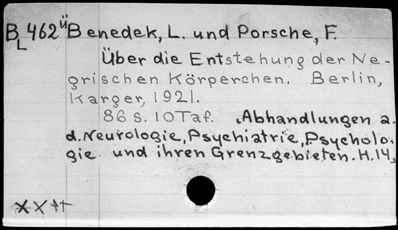 B 462ü Benedek, L. und Porsche, F.
L
Über die Entstehung der Ne-
grischen Körperchen. Berlin,
Karger, 1921.
86 S. 10 Taf. Abhandlungen a.
d. Neurologie, Psychiatrie, Psycholo-
gie und ihren Grenzgebieten. H. 14,